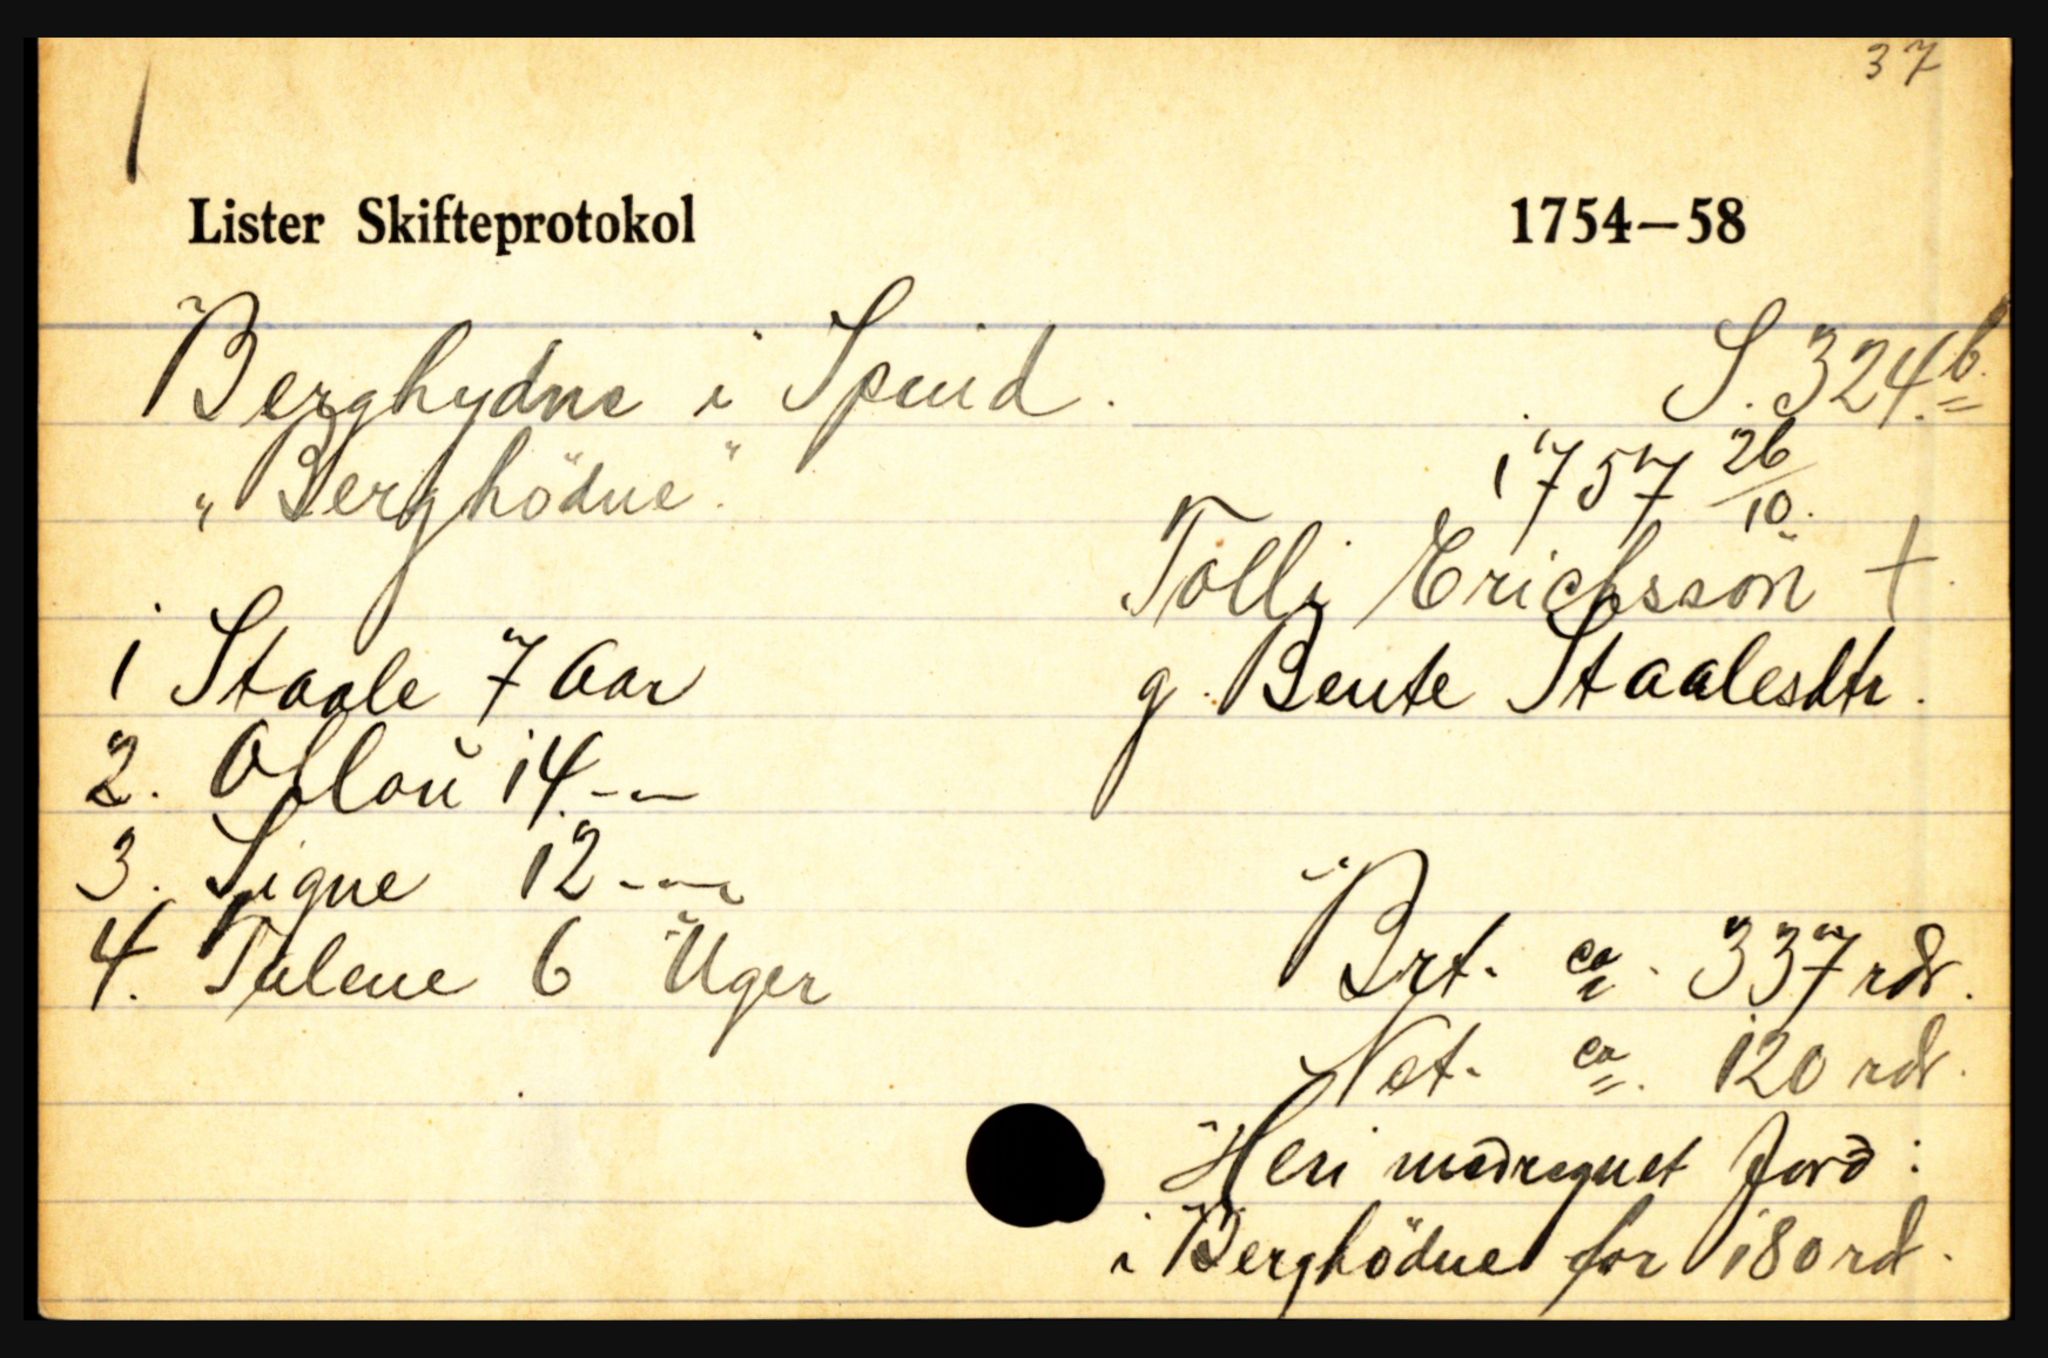 37
Lister Skifteprotokol 1754—58
Berghydne i Spind.
S. 324 b.
„Berghödne".
1757 26/10.
Tolli Erichssön +.
g. Bente Staalesdtr.
1 Staale 7 Aar
2. Aslou 14 - —
3. Signe 12 - —
4. Talene 6 Uger
Brt. ca. 337 rdr.
Net. ca. 120 rdr.
Heri medregnet Jord:
i Berghödne for 180 rd.